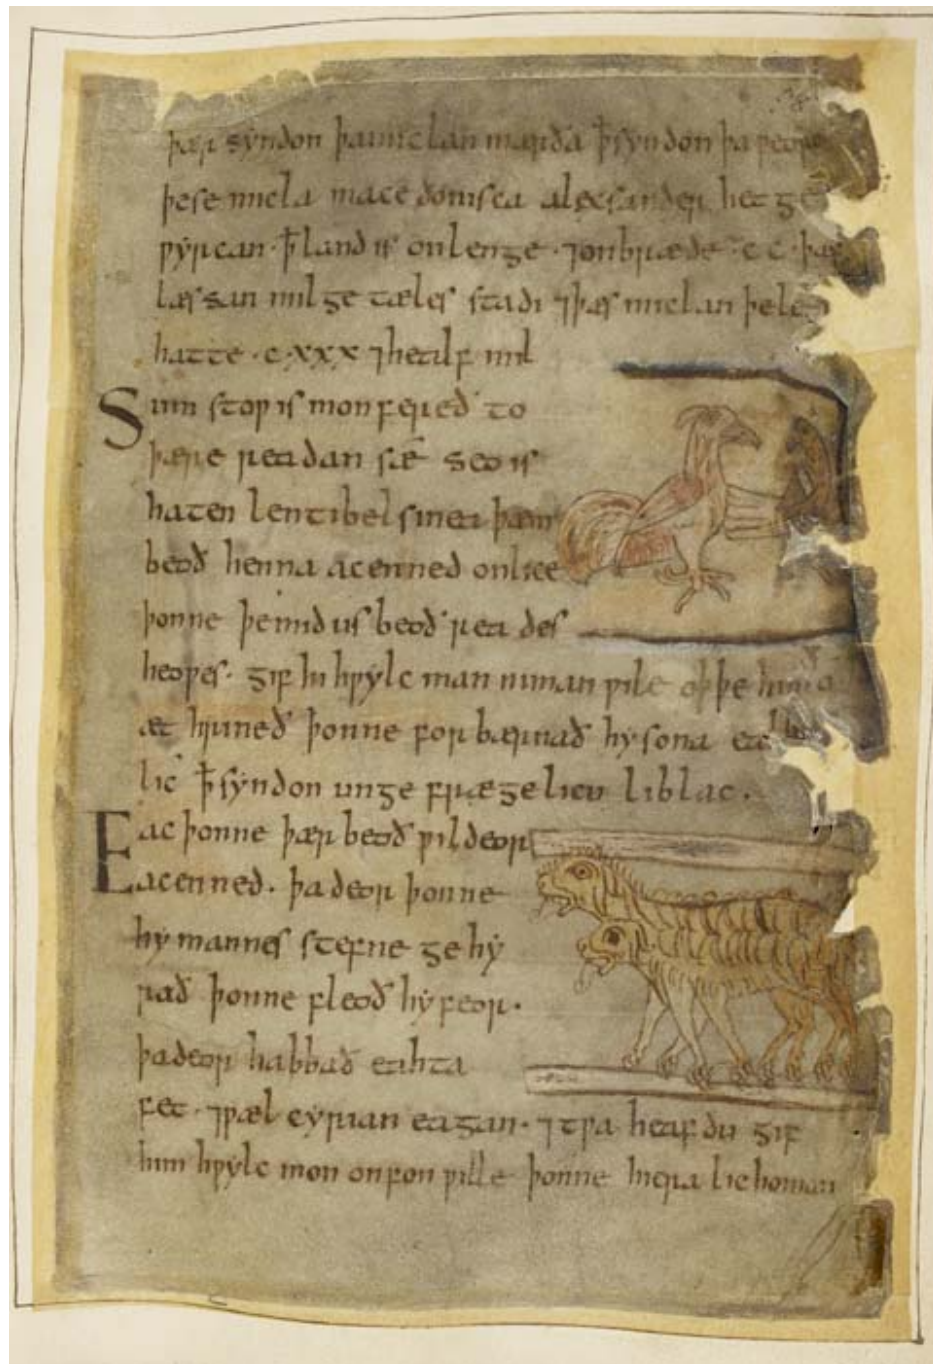 þær syndon þa miclan mærða ꝥ syndon þa ƿeorc
þe se micla macedonisca alecsander het ge
ƿyrcan · ꝥ land is on lenge · ⁊ on bræde · cc · þæs
læssan milgetæles stadi ⁊ þæs miclan þe leu
hatte · c·xxx ⁊ healf mil
Sum stoƿ is mon fereð to
þære readan sæ seo is
haten lentibelsinea þæm
beoð henna acenned onlice
þonne þe mid us beoð reades
heoƿes · gif hi hƿylc man niman ƿile oþþe hira
æt hrineð þonne forbærnað hy sona eal
lic ꝥ syndon ungefrægelicu liblac ·
Eac þonne þær beoð ƿildeor
acenned · þa deor þonne
hy mannes stefne gehy
rað þonne fleoð hy feor ·
þa deor habbað eahta
fet · ⁊ ƿælcyrian eagan · ⁊ tƿa heafdu gif
him hƿylc mon onfon ƿille þonne hiera lichoman